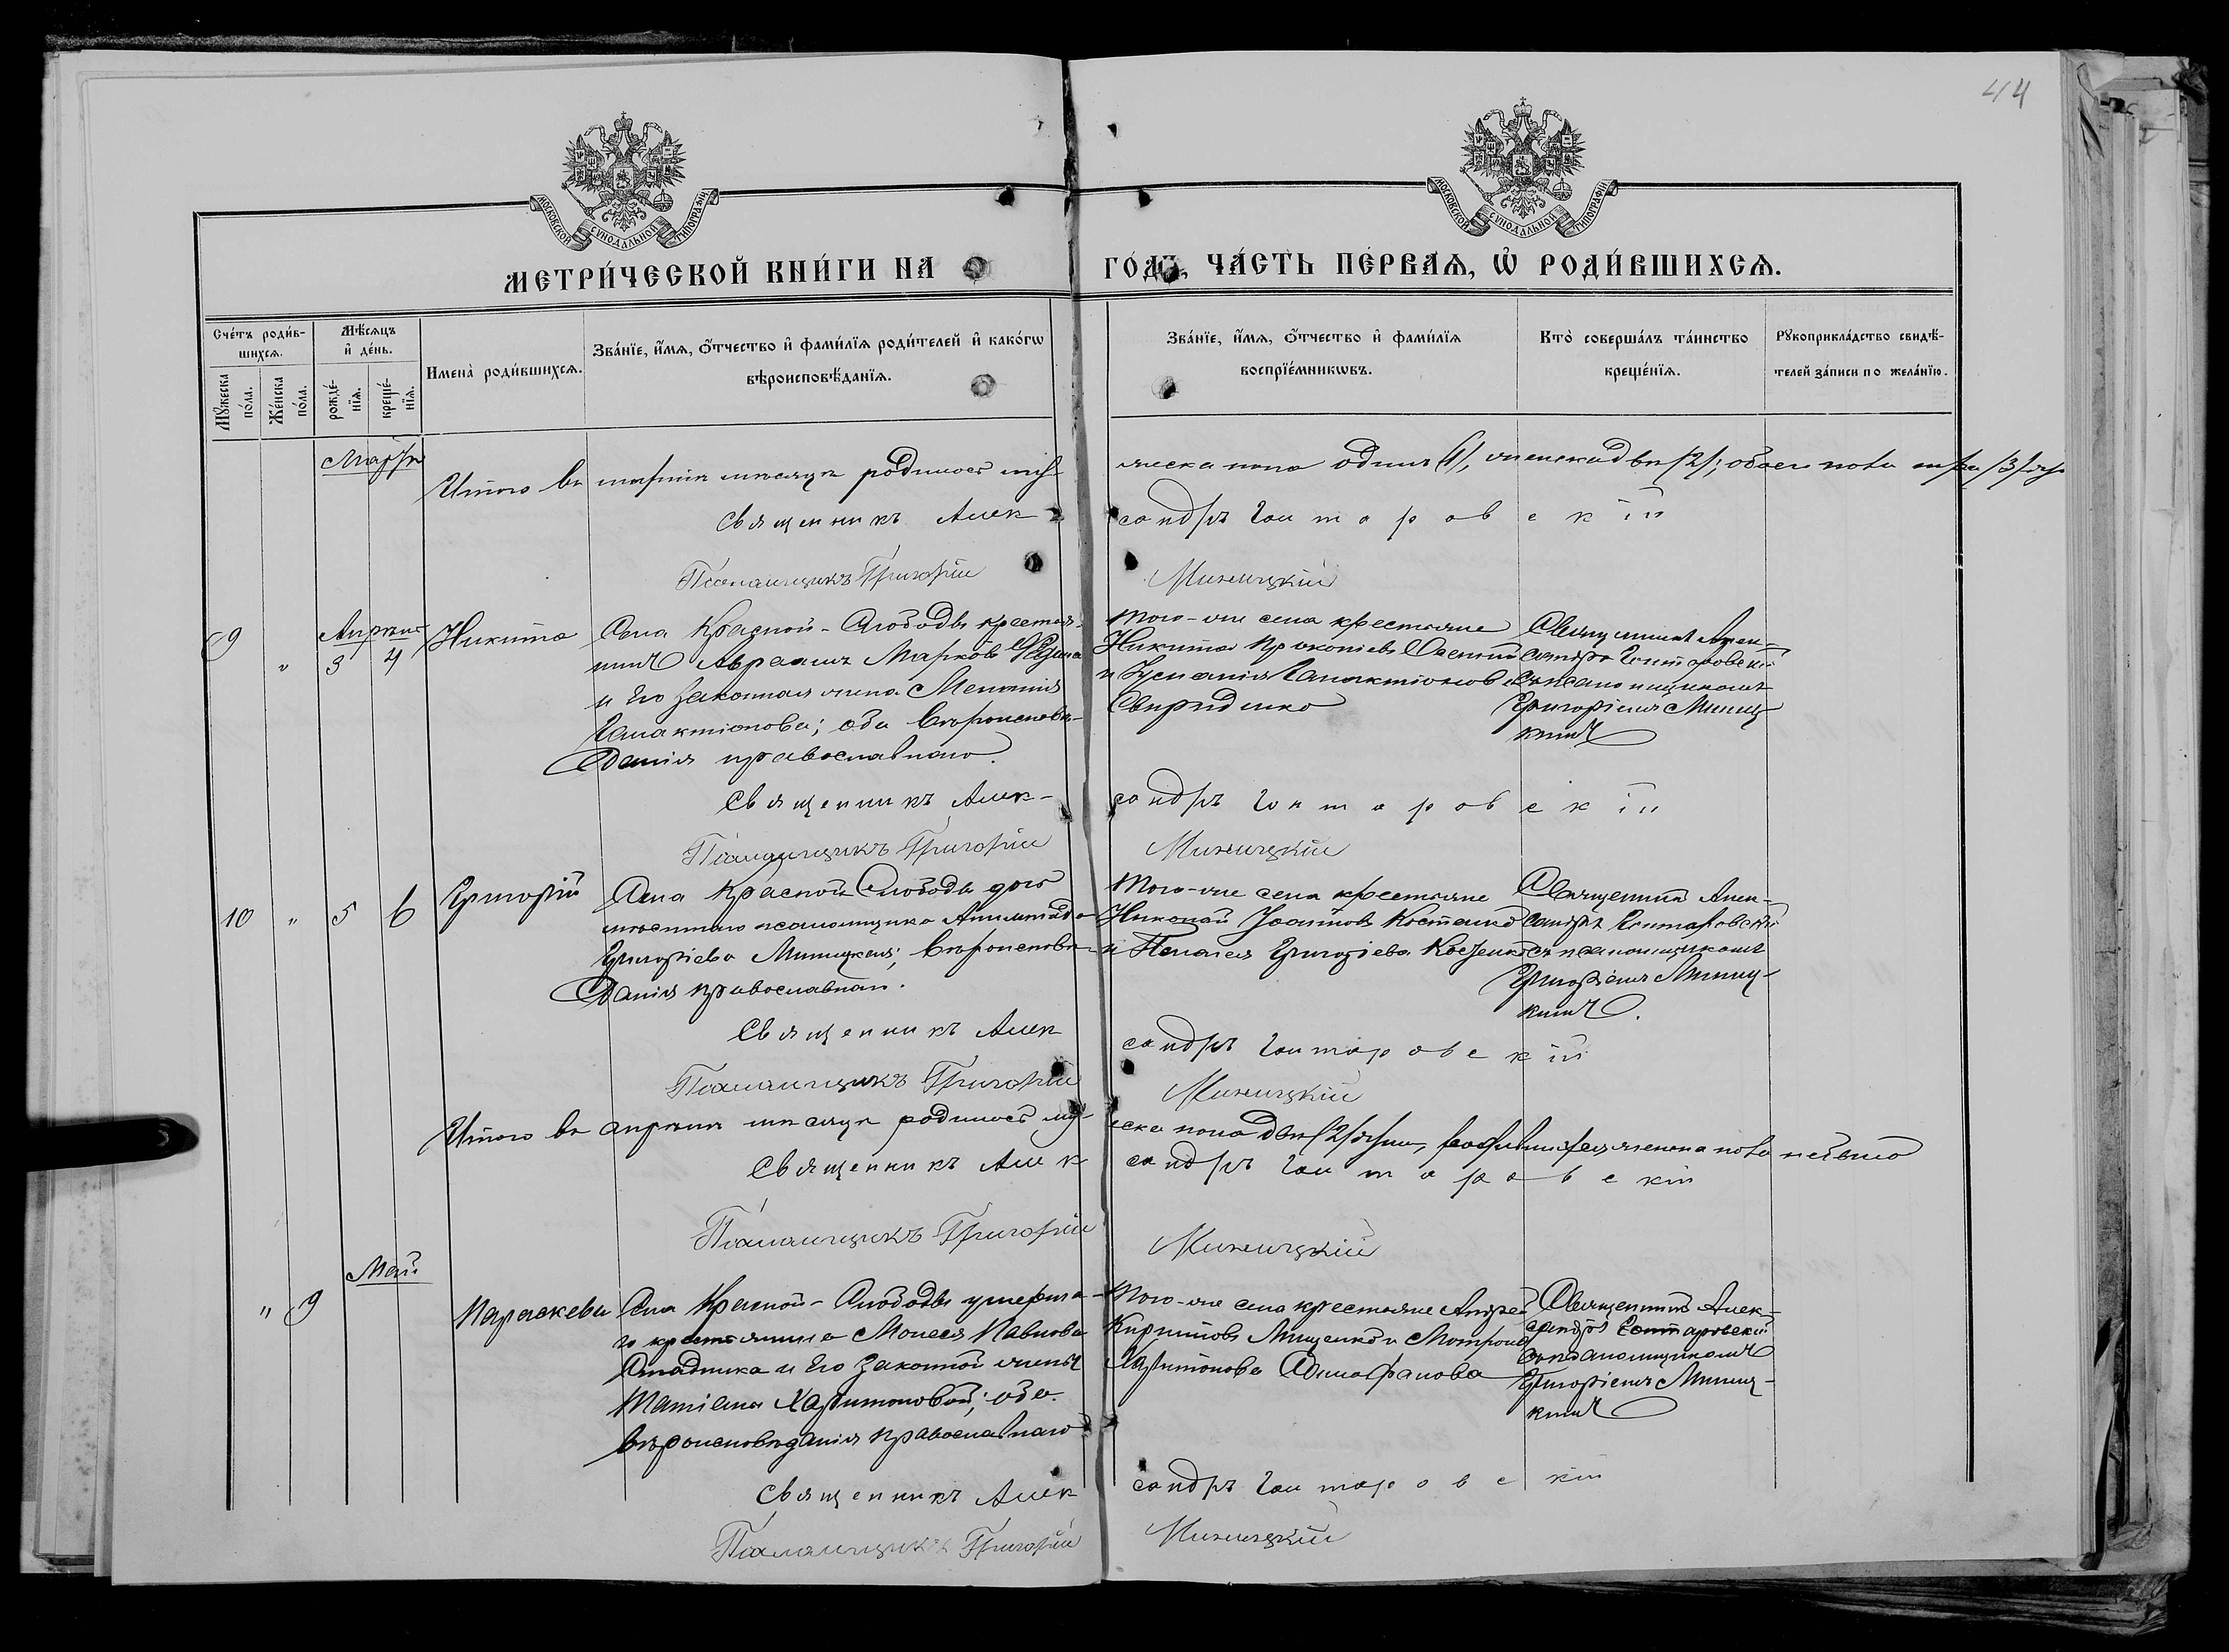 44
МОСКОВСКОЙ СУНОДАЛЬНОЙ ТИПОГРАФІИ
МОСКОВСКОЙ СУНОДАЛЬНОЙ ТИПОГРАФІИ
МЕТРИ́ЧЕСКОЙ КНИ́ГИ НА ГО́ДЪ, ЧА́СТЬ ПЕ́РВАѦ, Ѡ҆ РОДИ́ВШИХСѦ.
Сче́тъ роди́в-
шихсѧ.
Мꙋ́жеска
по́ла.
Же́нска
по́ла.
Мѣ́сѧцъ
и҆ де́нь.
рожде́-
нїѧ.
креще́-
нїѧ.
Имена̀ роди́вшихсѧ.
Зва́нїе, и҆́мѧ, ѻ҆́тчество и҆ фами́лїѧ роди́телей и҆ како́гѡ
вѣроисповѣ́данїѧ.
Зва́нїе, и҆́мѧ, ѻ҆́тчество и҆ фами́лїѧ
воспрїе́мникѡвъ.
Кто̀ соверша́лъ та́инство
креще́нїѧ.
Рꙋкоприкла́дство свидѣ́-
телей за́писи по жела́нїю.
Мартъ
Итого въ мартѣ мѣсяцѣ родилось
жеска пола одинъ /1/, женска двѣ /2/; обоего пола три /3/
Священникъ Александръ Гонтаровскій
Псаломщикъ Григорій Миницкій
Апрѣль
9 " 3 4 Никита
Села Красной-Слободы крестья-
нинъ Авраамъ Марковъ
и его законная жена
Галактіонова; оба вѣроисповѣ-
данія православнаго.
Того-же села крестьяне
Никита Прокопіевъ
и Галактіонова
Свириденко
Священникъ Алек-
сандръ Гонтаровскій
съ псаломщикомъ
Григоріемъ Миниц-
кимъ
Священникъ Александръ Гонтаровскій
Псаломщикъ Григорій Миницкій
10 " 5 6 Григорій
Села Красной Слободы
псаломщика
Григоріева Миницкая; вѣроисповѣ-
данія православнаго.
Того-же села крестьяне
Николай
и Пелагея Григоріева
Священникъ Алек-
сандръ Гонтаровскій
съ псаломщикомъ
Григоріемъ Миниц-
кимъ.
Священникъ Александръ Гонтаровскій
Псаломщикъ Григорій Миницкій
Итого въ апрѣлѣ мѣсяцѣ родилось му-
жеска пола два /2/ женска пола не было
Священникъ Александръ Гонтаровскій
Псаломщикъ Григорій Миницкій
Май
" 9 Параскева
Села Красной-Слободы умерша-
го крестьянина Моисея Павлова
и его законной жены
Татіаны Харитоновой; оба
вѣроисповѣданія православнаго
Того-же села крестьяне Андрей
Кирилловъ Мищенко и Матрона
Харитонова
Священникъ Алек-
сандръ Гонтаровскій
съ псаломщикомъ
Григоріемъ Миниц-
кимъ
Священникъ Александръ Гонтаровскій
Псаломщикъ Григорій Миницкій